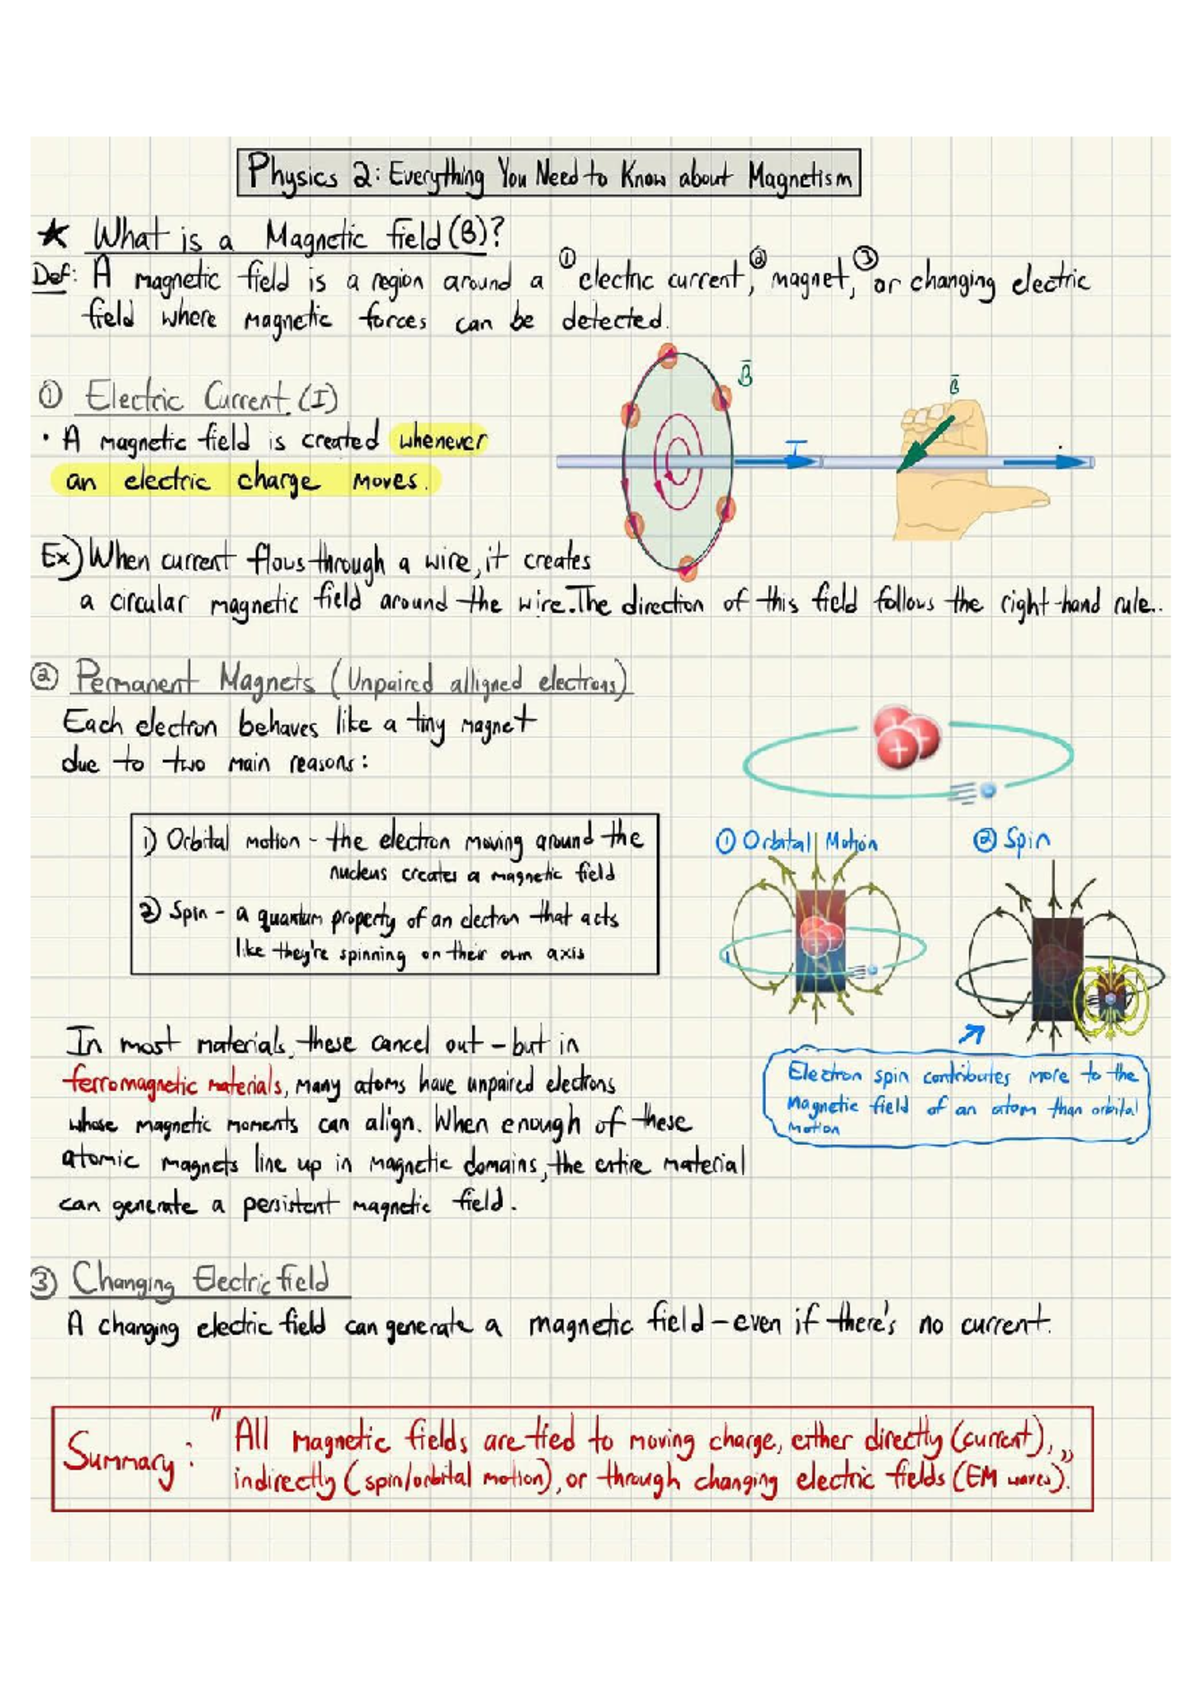 Physics 2: Everything You Need to Know about Magnetism
★ What is a Magnetic field (B)?
Def: A magnetic field is a region around a ① electric current, ② magnet, ③ or changing electric
field where magnetic forces can be detected.
B̄
B̄
① Electric Current (I)
• A magnetic field is created whenever
I
i
an electric charge moves.
Ex) When current flows through a wire, it creates
a circular magnetic field around the wire. The direction of this field follows the right-hand rule..
② Permanent Magnets (Unpaired alligned electrons)
Each electron behaves like a tiny magnet
due to two main reasons:
+
1) Orbital motion - the electron moving around the
nucleus creates a magnetic field
2) Spin - a quantum property of an electron that acts
like they're spinning on their own axis
① Orbital Motion
② Spin
+
S
S
In most materials, these cancel out - but in
ferromagnetic materials, many atoms have unpaired electrons
whose magnetic moments can align. When enough of these
atomic magnets line up in magnetic domains, the entire material
can generate a persistent magnetic field.
Electron spin contributes more to the
magnetic field of an atom than orbital
motion
③ Changing Electric field
A changing electric field can generate a magnetic field - even if there's no current.
Summary: "All magnetic fields are tied to moving charge, either directly (current),
indirectly (spin/orbital motion), or through changing electric fields (EM waves)."